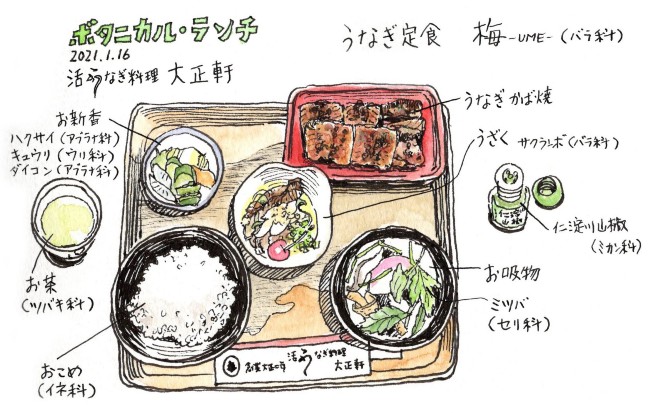 ボタニカル・ランチ
2021.1.16
活うなぎ料理 大正軒
うなぎ定食 梅-UME-(バラ科)
お新香
ハクサイ(アブラナ科)
キュウリ(ウリ科)
ダイコン(アブラナ科)
うなぎかば焼
うざく サクランボ(バラ科)
仁淀川山椒
(ミカン科)
仁淀川
山椒
お茶
(ツバキ科)
お吸物
ミツバ
(セリ科)
おこめ
(イネ科)
活うなぎ料理
大正軒